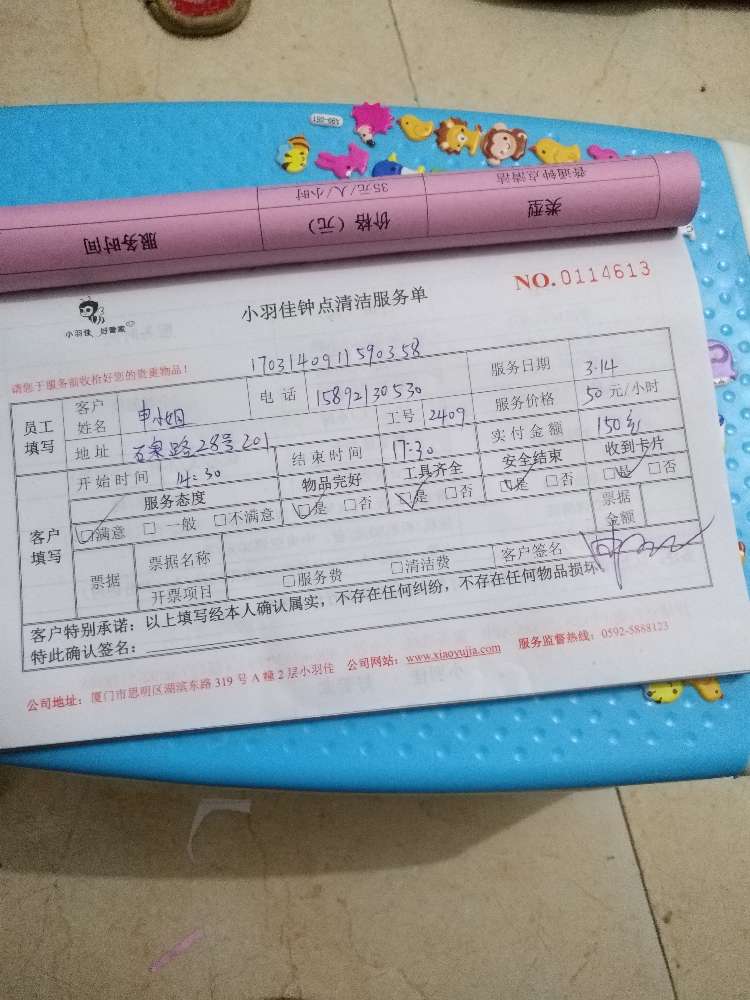 服务时间 价格（元） 类型
35元/人/小时 普通钟点清洁
NO.0114613
小羽佳 好管家
小羽佳钟点清洁服务单
请您于服务前收检好您的贵重物品！
1703140911590358
员工填写 客户姓名 申小姐 电话 15892130530 服务日期 3.14
地址 石泉路28号201 工号 2409 服务价格 50元/小时
开始时间 14:30 结束时间 17:30 实付金额 150元
客户填写 服务态度 物品完好 工具齐全 安全结束 收到卡片
☑满意 □一般 □不满意 ☑是 □否 ☑是 □否 ☑是 □否 ☑是 □否
票据 票据名称 票据金额
开票项目 □服务费 □清洁费 客户签名
客户特别承诺：以上填写经本人确认属实，不存在任何纠纷，不存在任何物品损坏
特此确认签名：
公司地址：厦门市思明区湖滨东路319号A幢2层小羽佳 公司网站：www.xiaoyujia.com 服务监督热线：0592-5888123